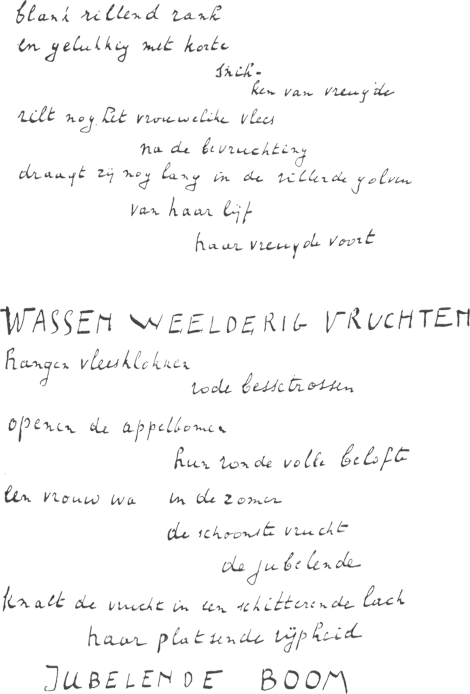 blank rillend rank
en gelukkig met korte
snik-
ken van vreugde
rilt nog het vrouwelike vlees
na de bevruchting
draagt zij nog lang in de rillende golven
van haar lijf
haar vreugde voort
WASSEN WEELDERIG VRUCHTEN
hangen vleesklokken
rode bessetrossen
openen de appelbomen
hun ronde volle belofte
een vrouw wa in de zomer
de schoonste vrucht
de jubelende
knalt de vrucht in een schitterende lach
haar platsende rijpheid
JUBELENDE BOOM